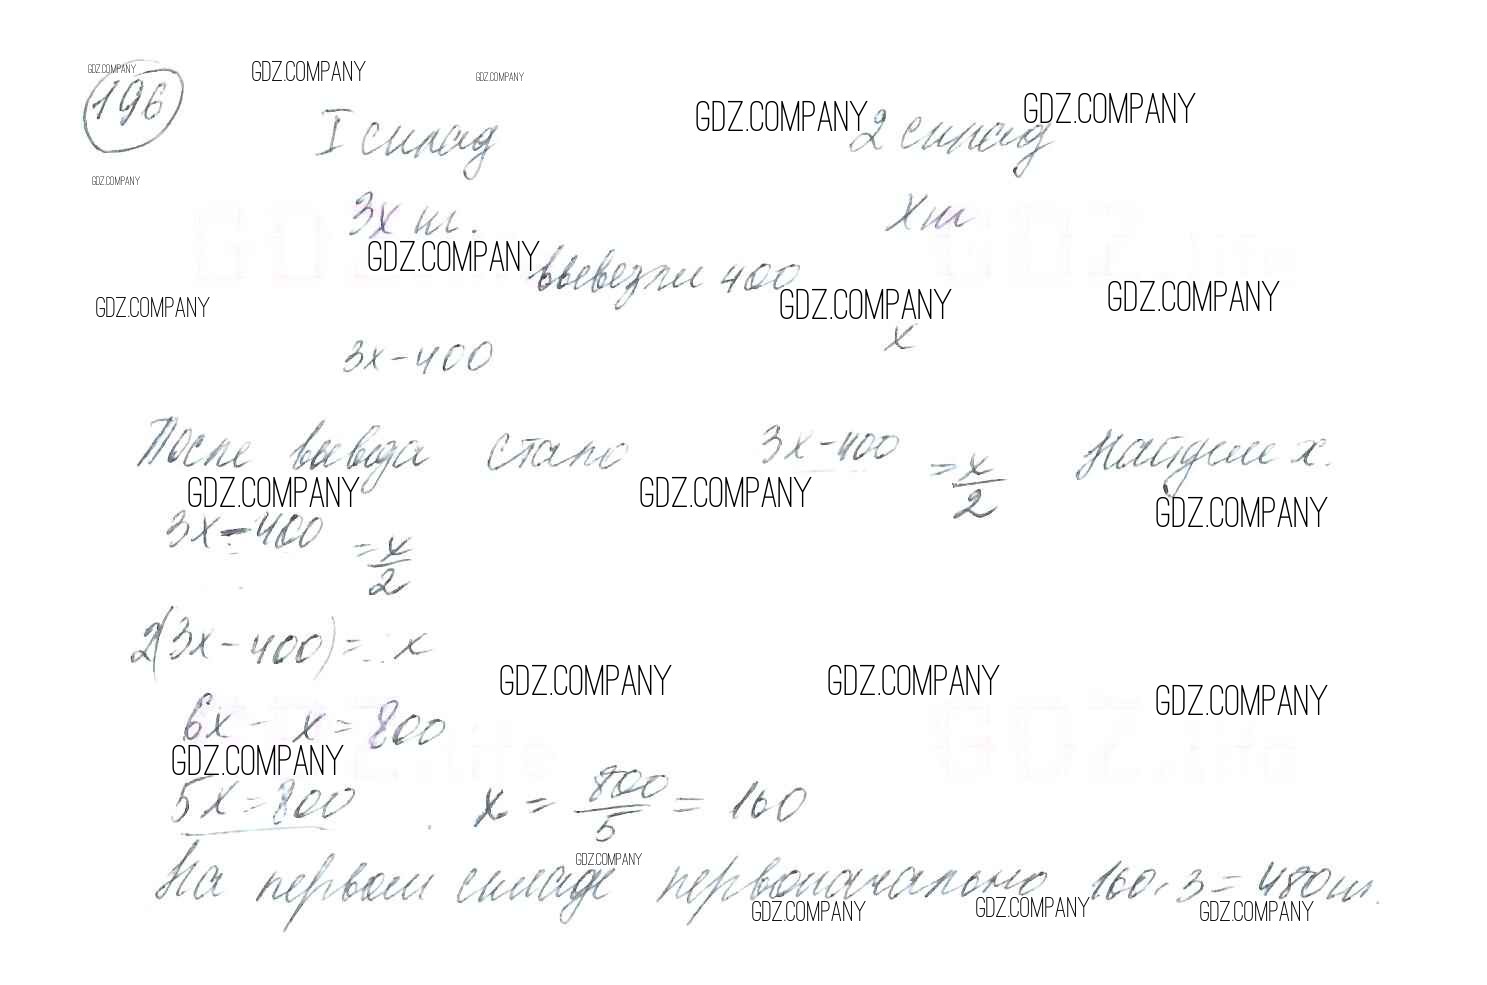 GDZ.COMPANY GDZ.COMPANY GDZ.COMPANY
196 I склад GDZ.COMPANY 2 склад GDZ.COMPANY
GDZ.COMPANY
3х ш. х ш
GDZ.COMPANY вывезли 400
GDZ.COMPANY GDZ.COMPANY GDZ.COMPANY
3х-400 х
После вывода стало 3х-400 = х/2 Найдем х.
GDZ.COMPANY GDZ.COMPANY GDZ.COMPANY
3х-400 = х/2
2(3х-400)= х
GDZ.COMPANY GDZ.COMPANY GDZ.COMPANY
6х - х = 800
GDZ.COMPANY
5х=800 х = 800/5 = 160
GDZ.COMPANY
На первом складе первоначально 160·3=480ш.
GDZ.COMPANY GDZ.COMPANY GDZ.COMPANY